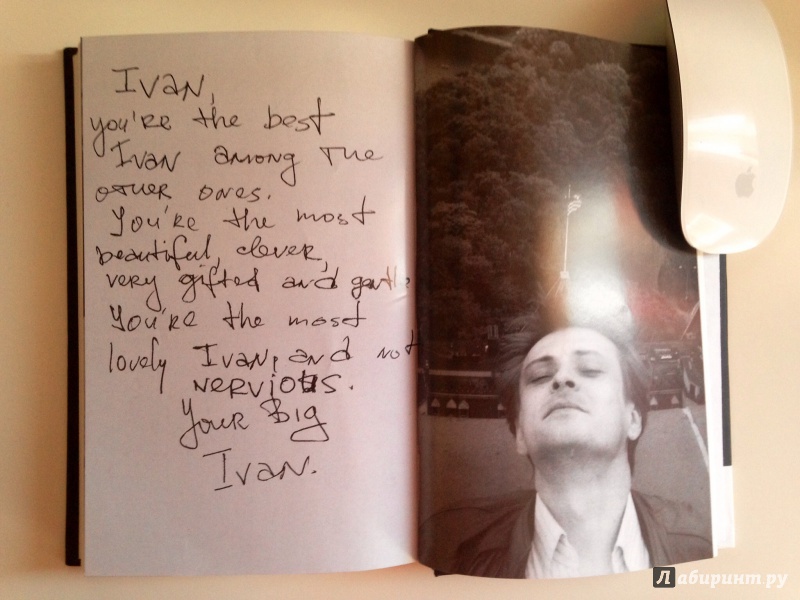 Ivan,
you're the best
Ivan among the
other ones.
You're the most
beautiful, clever,
very gifted and gentle.
You're the most
lovely Ivan, and not
nervious.
Your Big
Ivan.
Лабиринт.ру